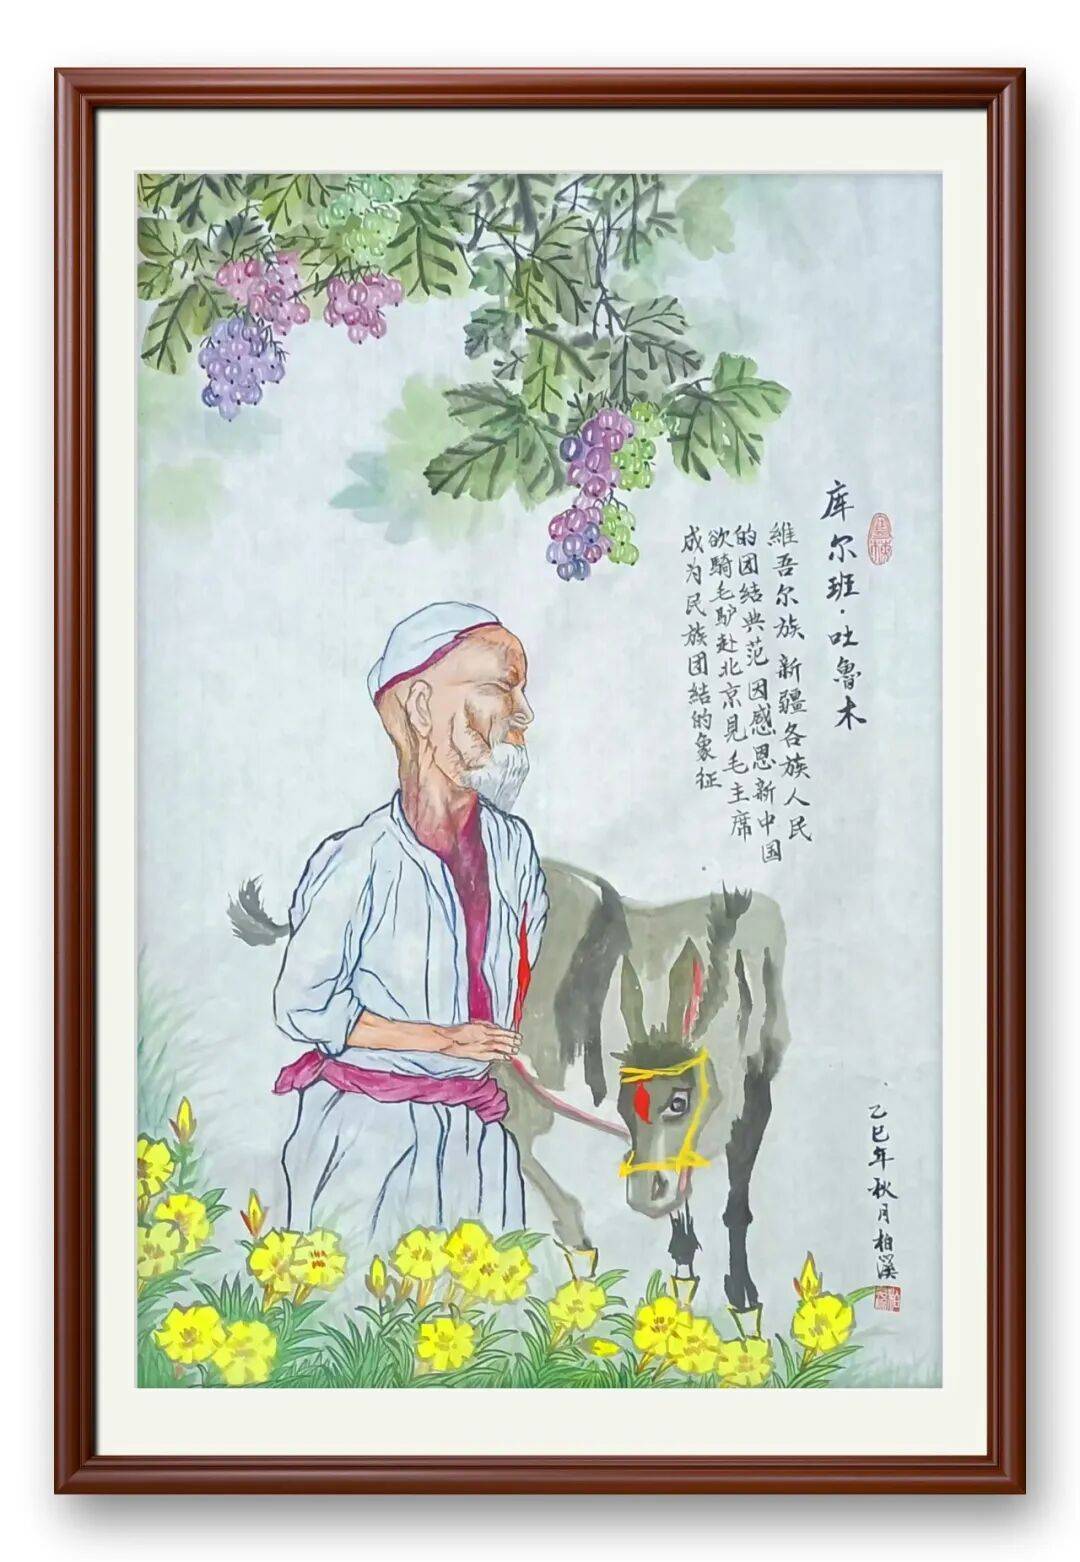 库尔班·吐鲁木
維吾尔族 新疆各族人民
的团结典范因感恩新中国
欲騎毛驴赴北京見毛主席
成为民族团結的象征
乙巳年秋月柏溪